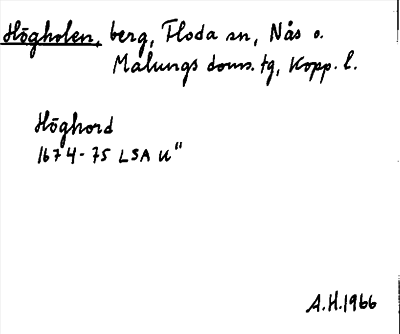 Högholen, berg, Floda sn, Nås o.
Malungs doms. tg, Kopp. l.
Höghord
1674-75 LSA U"
A.H. 1966